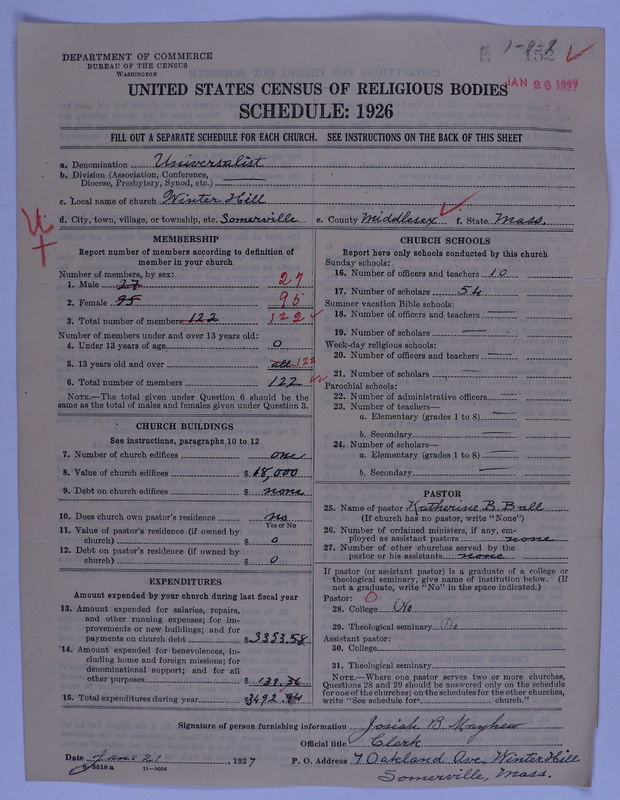 1-9-8
152
JAN 26 1927
DEPARTMENT OF COMMERCE
BUREAU OF THE CENSUS
WASHINGTON
UNITED STATES CENSUS OF RELIGIOUS BODIES
SCHEDULE: 1926
FILL OUT A SEPARATE SCHEDULE FOR EACH CHURCH. SEE INSTRUCTIONS ON THE BACK OF THIS SHEET
a. Denomination Universalist
b. Division (Association, Conference,
Diocese, Presbytery, Synod, etc.)
c. Local name of church Winter Hill
d. City, town, village, or township, etc. Somerville e. County Middlesex f. State Mass.
MEMBERSHIP
Report number of members according to definition of
member in your church
Number of members, by sex:
1. Male 27 27
2. Female 95 95
3. Total number of members 122 122
Number of members under and over 13 years old:
4. Under 13 years of age 0
5. 13 years old and over all 122
6. Total number of members 122
NOTE.—The total given under Question 6 should be the
same as the total of males and females given under Question 3.
CHURCH BUILDINGS
See instructions, paragraphs 10 to 12
7. Number of church edifices one
8. Value of church edifices $18,000
9. Debt on church edifices $ none
10. Does church own pastor's residence no
Yes or No
11. Value of pastor's residence (if owned by
church) $ 0
12. Debt on pastor's residence (if owned by
church) $ 0
EXPENDITURES
Amount expended by your church during last fiscal year
13. Amount expended for salaries, repairs,
and other running expenses; for im-
provements or new buildings; and for
payments on church debt $3353.58
14. Amount expended for benevolences, in-
cluding home and foreign missions; for
denominational support; and for all
other purposes $ 139.36
15. Total expenditures during year $3492.94
CHURCH SCHOOLS
Report here only schools conducted by this church
Sunday schools:
16. Number of officers and teachers 10
17. Number of scholars 54
Summer vacation Bible schools:
18. Number of officers and teachers
19. Number of scholars
Week-day religious schools:
20. Number of officers and teachers
21. Number of scholars
Parochial schools:
22. Number of administrative officers
23. Number of teachers—
a. Elementary (grades 1 to 8)
b. Secondary
24. Number of scholars—
a. Elementary (grades 1 to 8)
b. Secondary
PASTOR
25. Name of pastor Katherine B. Ball
(If church has no pastor, write "None")
26. Number of ordained ministers, if any, em-
ployed as assistant pastors none
27. Number of other churches served by the
pastor or his assistants none
If pastor (or assistant pastor) is a graduate of a college or
theological seminary, give name of institution below. (If
not a graduate, write "No" in the space indicated.)
Pastor: O
28. College No
29. Theological seminary No
Assistant pastor:
30. College
31. Theological seminary
NOTE.—Where one pastor serves two or more churches,
Questions 28 and 29 should be answered only on the schedule
for one of the churches; on the schedules for the other churches,
write "See schedule for church."
Signature of person furnishing information Josiah B. Mayhew
Official title Clerk
Date Jan. 21, 1927 P. O. Address 7 Oakland Ave, Winter Hill
8-5518a 11-9084 Somerville, Mass.